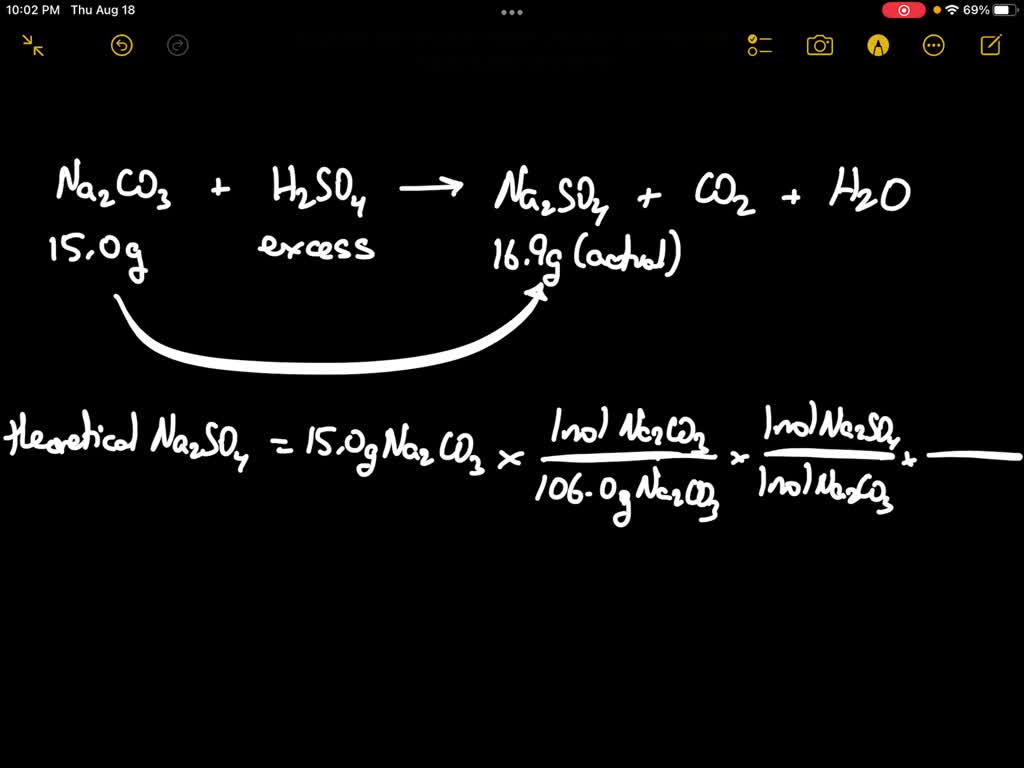 10:02 PM Thu Aug 18
69%
Na₂CO₃ + H₂SO₄ → Na₂SO₄ + CO₂ + H₂O
15.0g excess 16.9g (actual)
theoretical Na₂SO₄ = 15.0g Na₂CO₃ × 1mol Na₂CO₃ / 106.0g Na₂CO₃ × 1mol Na₂SO₄ / 1mol Na₂CO₃ ×